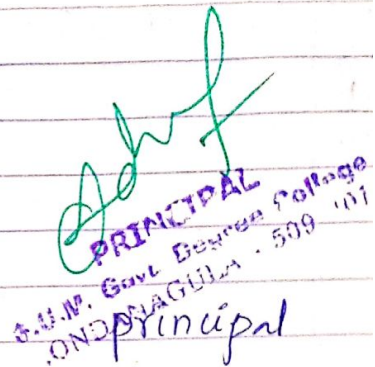 PRINCIPAL
S.U.M. Govt Degree College
KONDANAGULA - 509 '01
principal